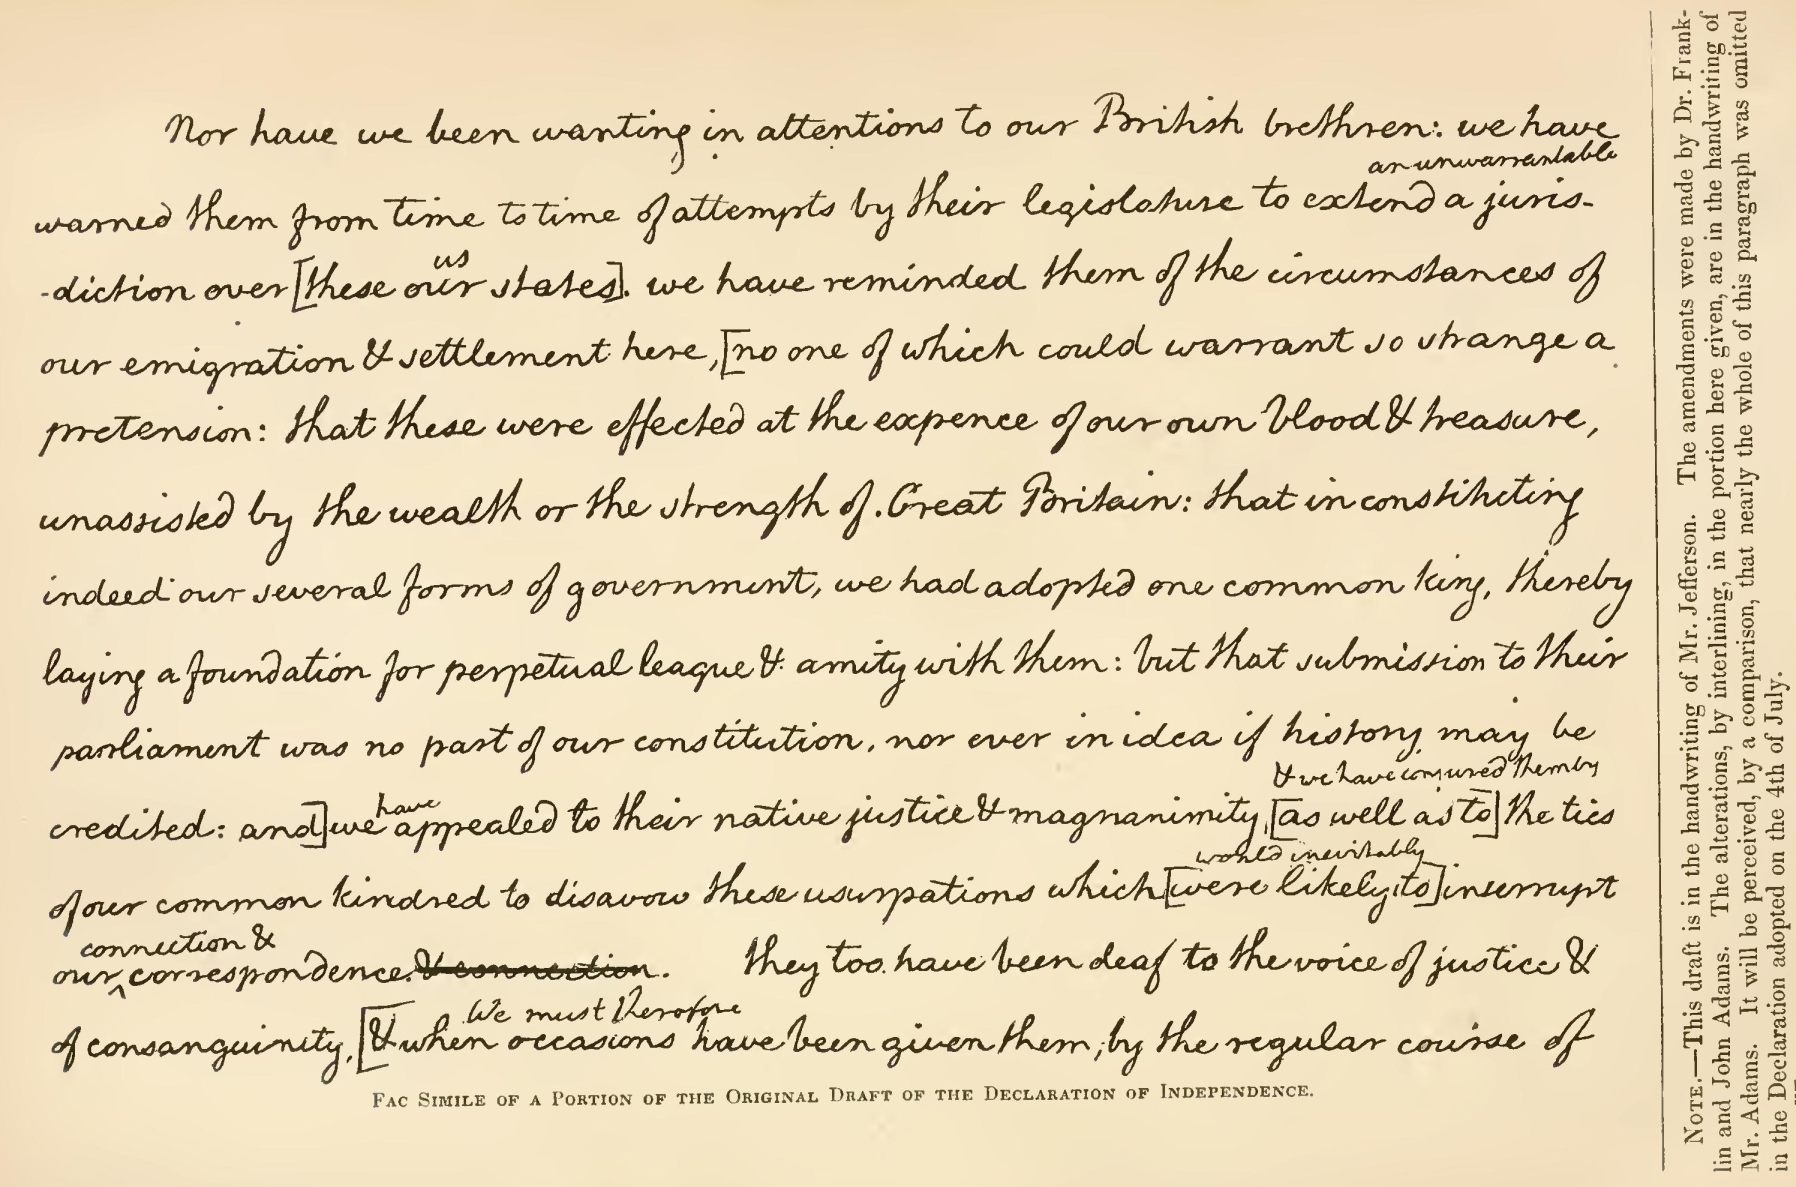 Nor have we been wanting in attentions to our British brethren: we have
an unwarrantable
warned them from time to time of attempts by their legislature to extend a juris-
us
-diction over [these our states]. we have reminded them of the circumstances of
our emigration & settlement here, [no one of which could warrant so strange a
pretension: that these were effected at the expence of our own blood & treasure,
unassisted by the wealth or the strength of Great Britain: that in constituting
indeed our several forms of government, we had adopted one common king, thereby
laying a foundation for perpetual league & amity with them: but that submission to their
parliament was no part of our constitution, nor ever in idea if history may be
& we have conjured them by
have
credited: and] we appealed to their native justice & magnanimity, [as well as to] the ties
would inevitably
of our common kindred to disavow these usurpations which [were likely to] interrupt
connection &
our correspondence. & connection. they too have been deaf to the voice of justice &
We must therefore
of consanguinity, [& when occasions have been given them, by the regular course of
FAC SIMILE OF A PORTION OF THE ORIGINAL DRAFT OF THE DECLARATION OF INDEPENDENCE.
NOTE.—This draft is in the handwriting of Mr. Jefferson. The amendments were made by Dr. Frank-
lin and John Adams. The alterations, by interlining, in the portion here given, are in the handwriting of
Mr. Adams. It will be perceived, by a comparison, that nearly the whole of this paragraph was omitted
in the Declaration adopted on the 4th of July.